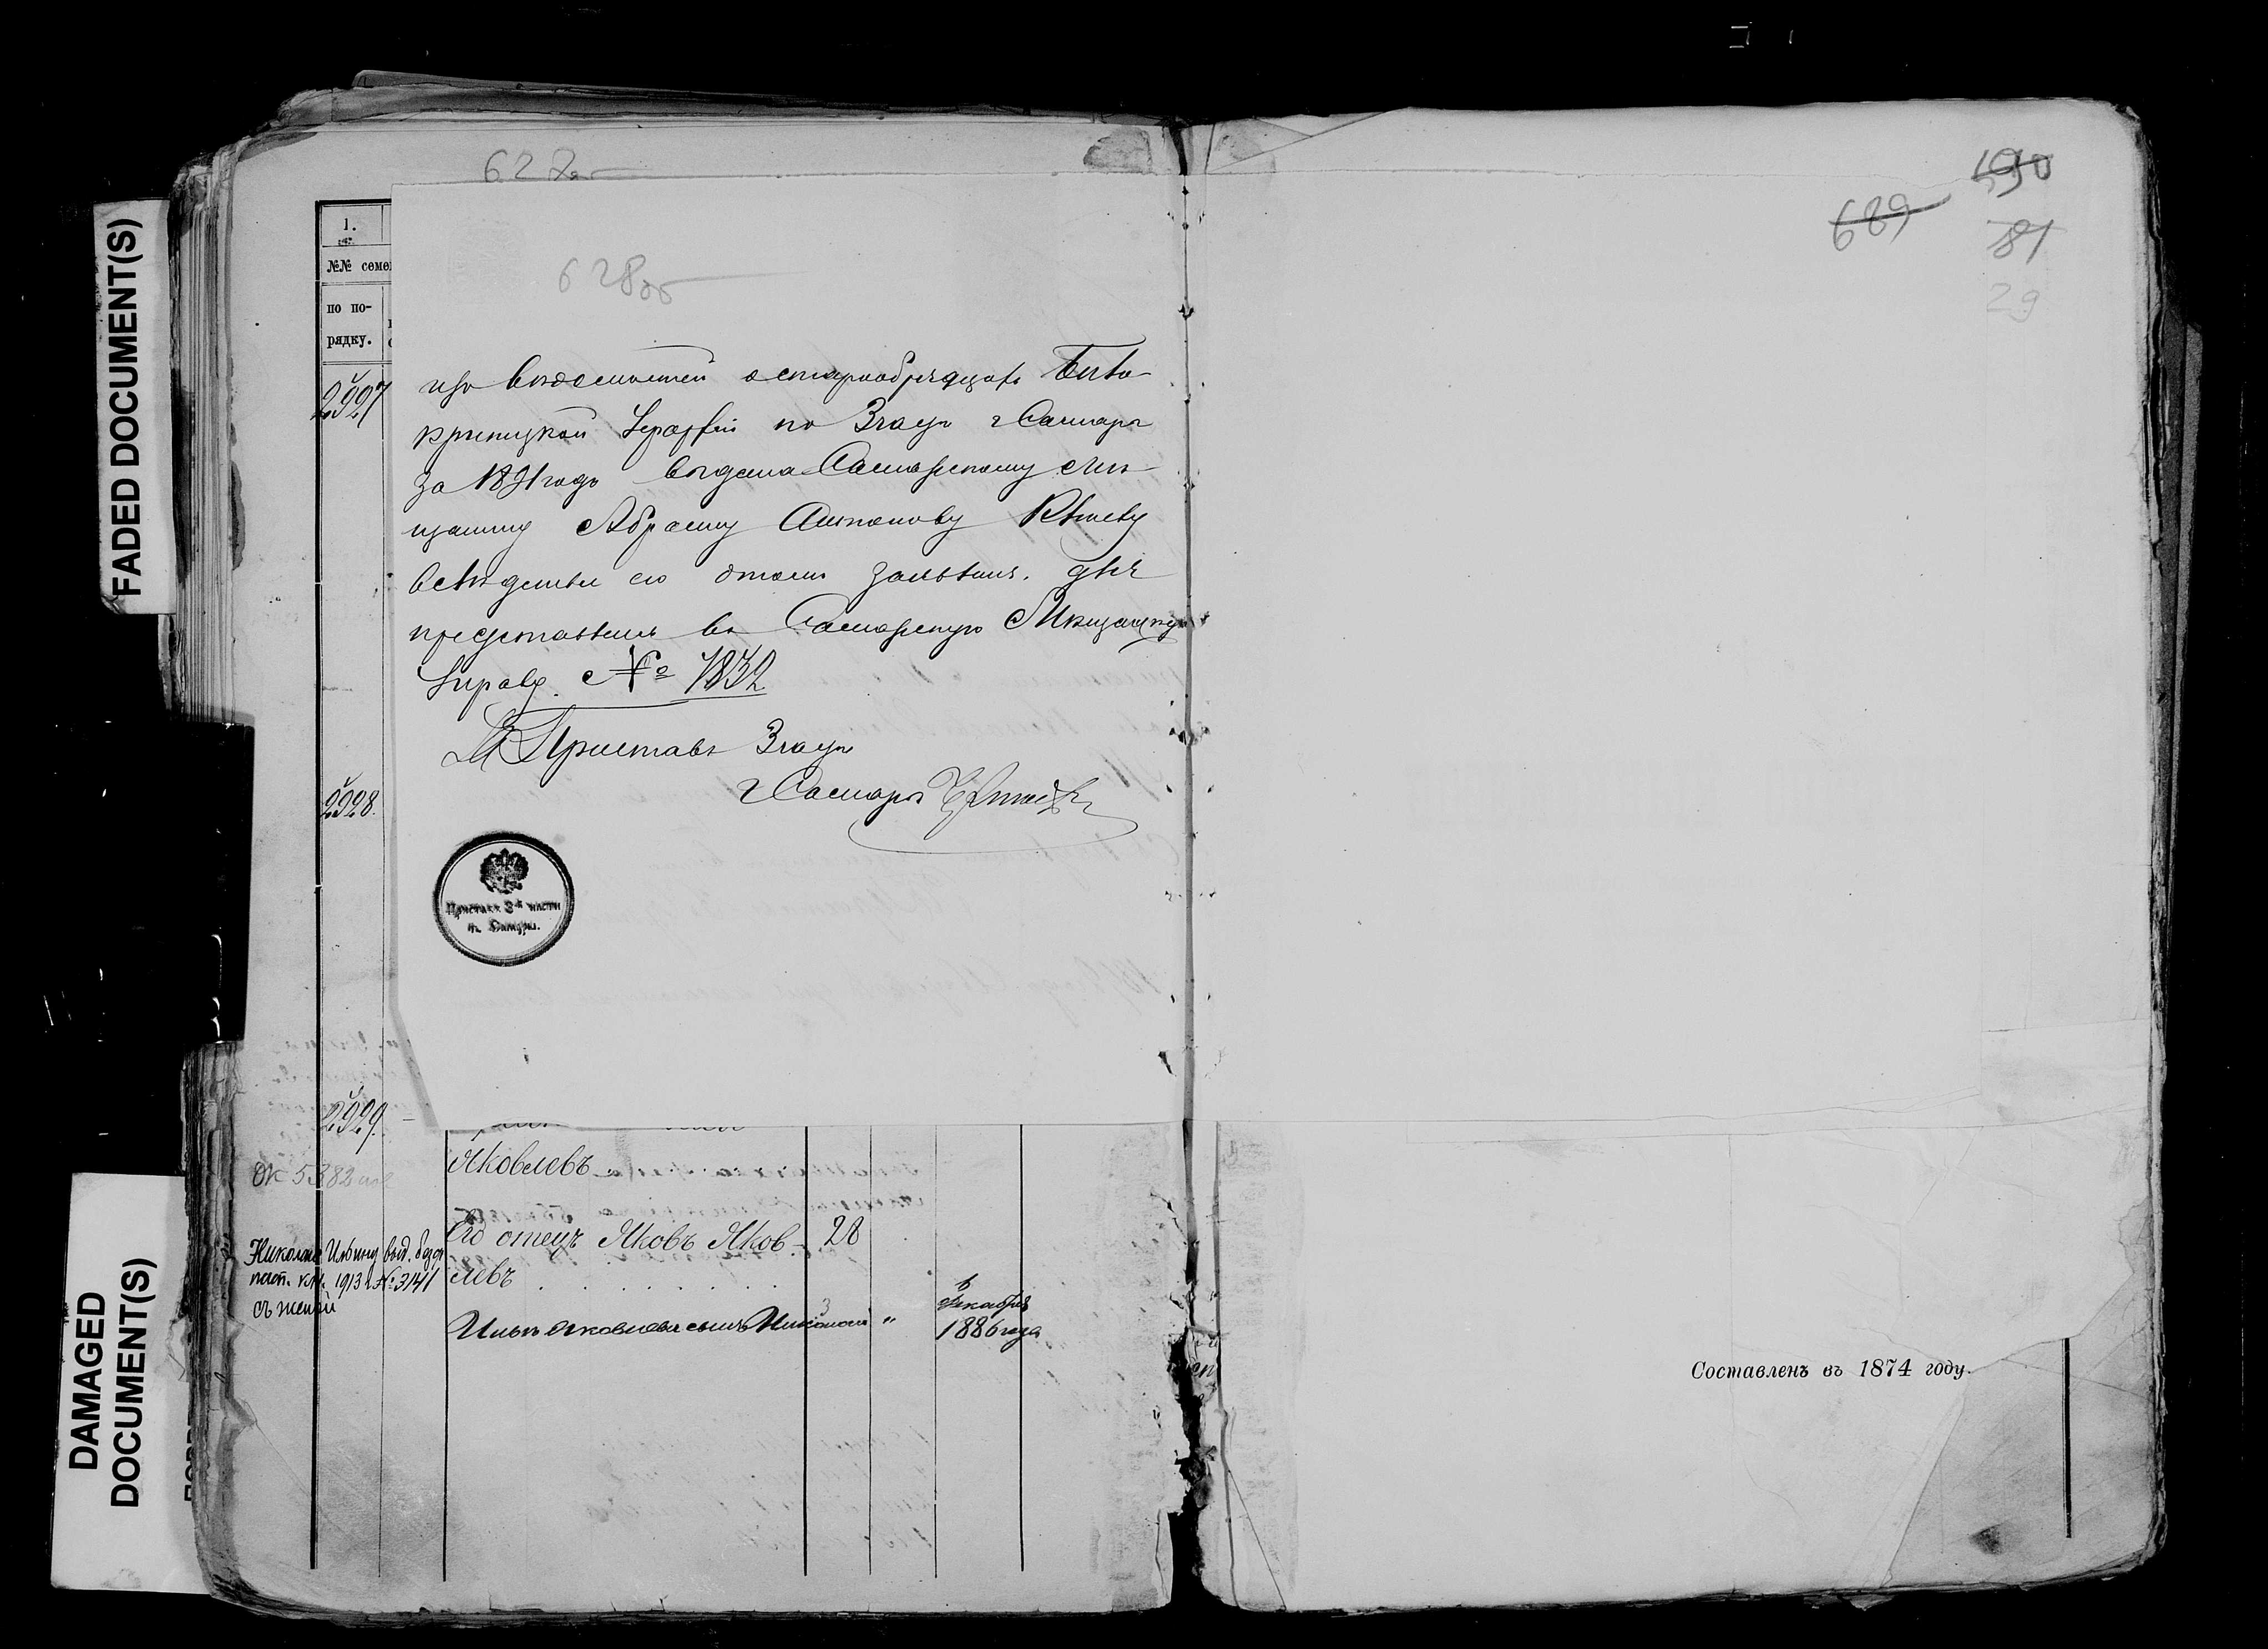 FADED DOCUMENT(S)
DAMAGED DOCUMENT(S)
628об
1.
№№ семе
по по-
рядку.
2927
2928.
2929.
628об
изъ вѣдомостей о старообрядцахъ Бѣло-
криницкой Іерархіи по 3 части г Самары
за 1891 годъ выдана Самарскому мѣ-
щанину Абраму Антонову
вслѣдствіе его о томъ заявленія, для
представленія въ Самарскую Мѣщанскую
Управу. № 1832
Приставъ 3 части
г Самары
Приставъ 3й части
г. Самары.
Яковлевъ
Его отецъ Яковъ Яков- 28
левъ
Ильи Яковлева сынъ Николай 3 "
6 декабря
1886 года
ок 5382
Николаю Ильину выд. безср
пасп. кн. 1913 г. № 3141
съ женой
690
689
81
29
Составленъ въ 1874 году.